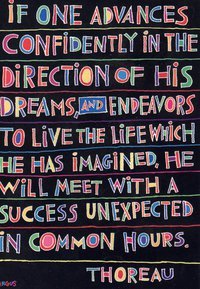 iF ONE ADVANCES
CONFiDENTLY iN THE
DiRECTiON OF HiS
DREAMS, AND ENDEAVORS
TO LiVE THE LiFE WHiCH
HE HAS iMAGiNED, HE
WiLL MEET WiTH A
SUCCESS UNEXPECTED
iN COMMON HOURS.
THOREAU
ARGUS